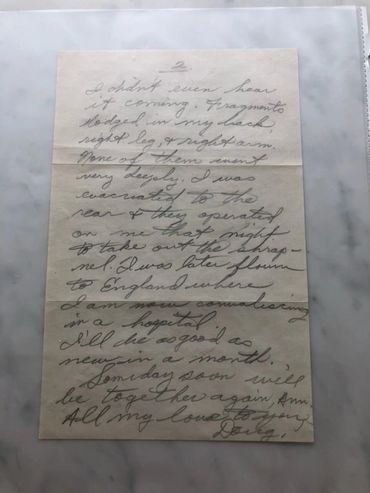 2
I didn't even hear
it coming. Fragments
lodged in my back,
right leg, & right arm.
None of them went
very deeply. I was
evacuated to the
rear & they operated
on me that night
to take out the shrap-
nel. I was later flown
to England where
I am now convalescing
in a hospital.
I'll be as good as
new in a month.
Someday soon will
be together again, Ann.
All my love to you,
Doug.